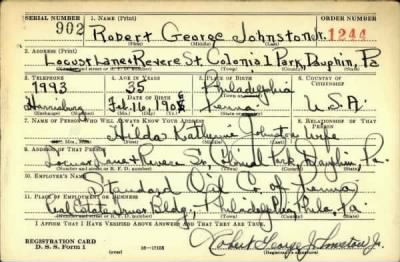 SERIAL NUMBER 1. NAME (Print) ORDER NUMBER
902 Robert George Johnston Jr. 1244
(First) (Middle) (Last)
2. ADDRESS (Print)
Locust Lane & Revere St. Colonial Park, Dauphin, Pa
3. TELEPHONE 4. AGE IN YEARS 5. PLACE OF BIRTH 6. COUNTRY OF CITIZENSHIP
1993 35 Philadelphia
Harrisburg DATE OF BIRTH Feb. 16, Penna. U.S.A.
(Exchange) (Number) (Mo.) (Day) (Yr.) (State or country)
7. NAME OF PERSON WHO WILL ALWAYS KNOW YOUR ADDRESS 8. RELATIONSHIP OF THAT PERSON
Hilda Katherine Johnston Wife
(Mr., Mrs., Miss) (First) (Middle) (Last)
9. ADDRESS OF THAT PERSON
Locust Lane & Revere St. Colonial Park, Dauphin, Pa.
10. EMPLOYER'S NAME
Standard Oil Co. of Penna
11. PLACE OF EMPLOYMENT OR BUSINESS
Real Estate Bldg., Philadelphia Phila. Pa.
I AFFIRM THAT I HAVE VERIFIED ABOVE ANSWERS AND THAT THEY ARE TRUE.
REGISTRATION CARD
D. S. S. Form 1 Robert George Johnston Jr.
(Registrant's signature)